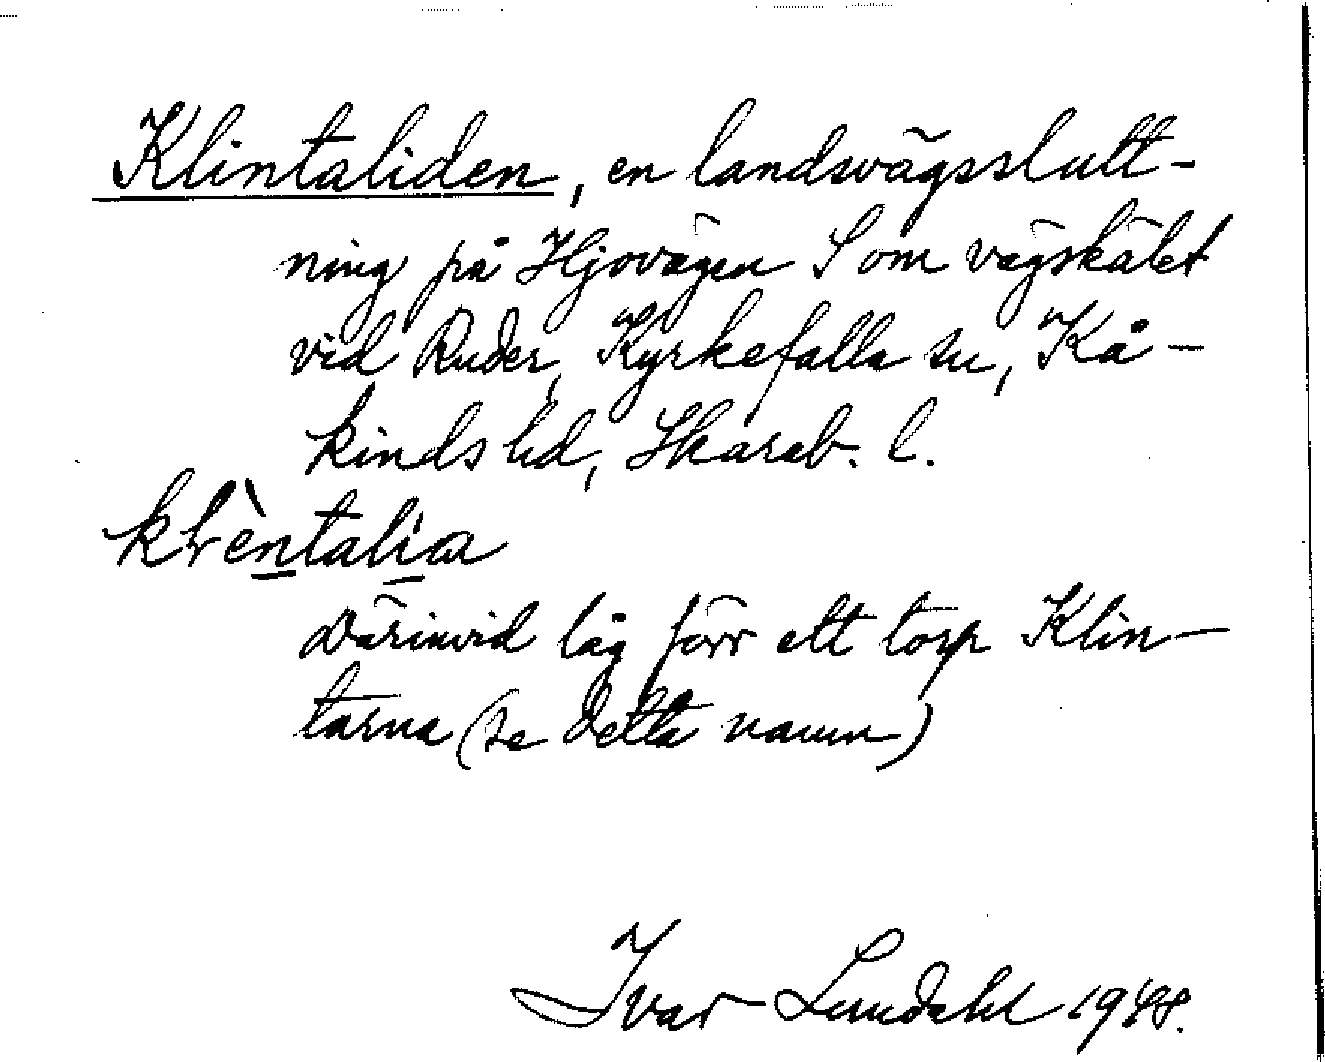 Klintaliden, en landsvägsslutt-
ning på Hjovägen S om vägskälet
vid Ruder, Kyrkefalla sn, Kå-
kinds hd, Skarab. l.
därinvid låg förr ett torp Klin-
tarna (se detta namn)
Ivar Lundahl 1948.